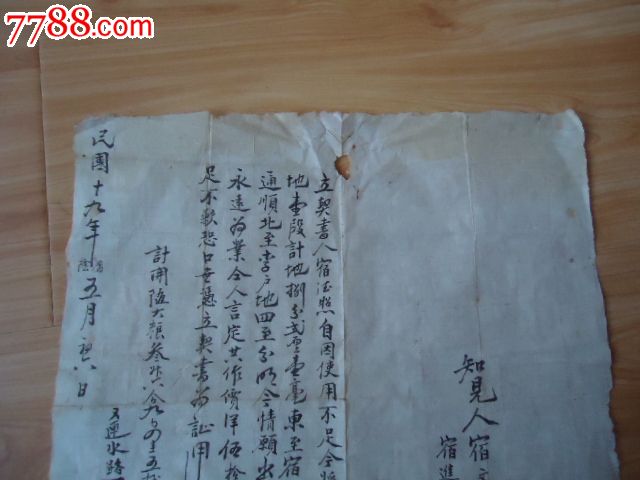 7788.com
知見人宿
宿進
立契書人宿

照自因使用不足今將
地壹段計地捌分弍厘壹毫東至宿
通順北至李戶地四至分明今情願出
永遠為業合人言定共作價洋伍拾
足不欺恐口無憑立契書為証用
計開
五
又連水路
民國十九年
五月初八日